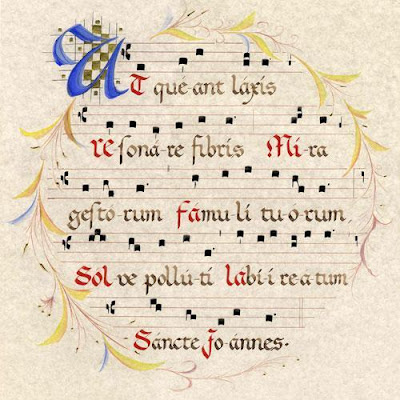 UT qué-ant láxis
re soná-re fíbris Mi-ra
gestó-rum fámu-li tu-ó-rum,
Sol-ve pollú-ti lábi-i re-a-tum
Sáncte Jo-ánnes.